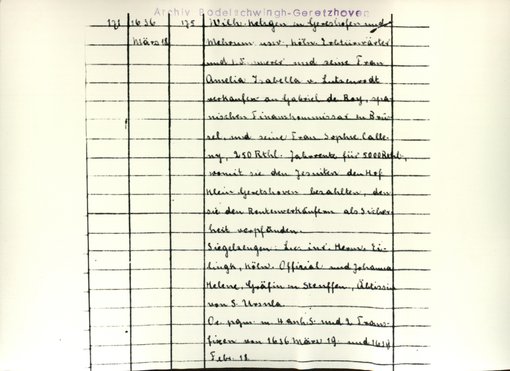 Archiv Bodelschwingh-Geretzhoven
171 1636 175 Wilh. in Gereshofen und
März 18 usw., Köln.
und seine Frau
Amelia Isabella v.
verkaufen an Gabriel de Roy, spa-
nischen Finanzkommissar in Brüs-
sel, und seine Frau Sophie Calle-
ny, 250 Rthl. Jahrrente für 5000 Rthl.,
womit sie den Jesuiten den Hof
Klein Geretshoven bezahlten, den
sie den Rentenverkäufern als Sicher-
heit verpfänden.
Siegelzeugen: Lic. jur. Herm. Ei-
lingk, Köln. Official und Johanna
Helene, Gräfin in Stauffen, Äbtissin
von S. Ursula.
Or. pgm. m. 4 anh. S. und 2 Trans-
fixen von 1636 März 19 und
Febr. 18